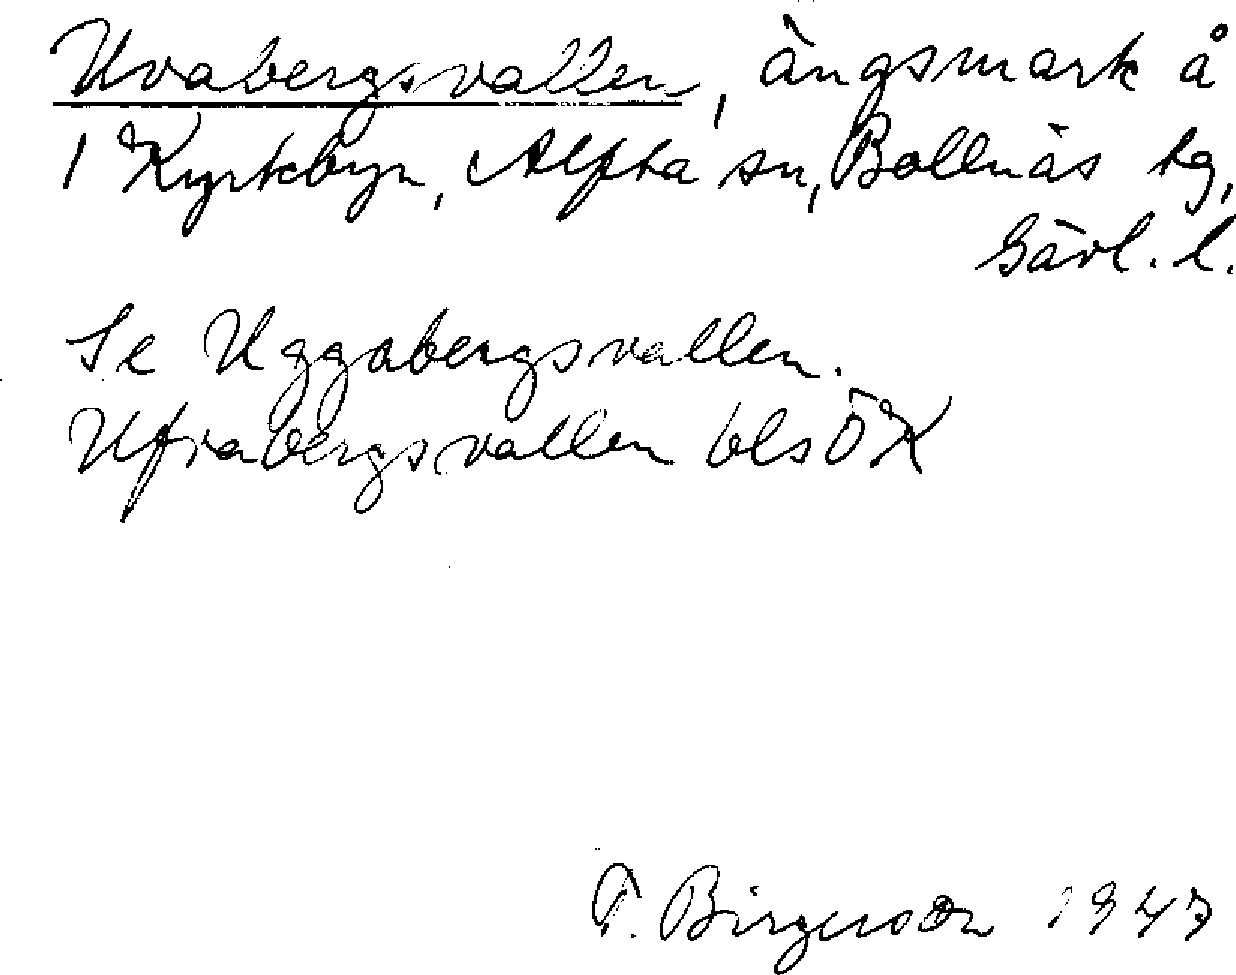 Uvabergsvallen, ängsmark å
1 Kyrkbyn, Alfta sn, Bollnäs tg,
Gävl. l.
Se Uggabergsvallen.
Ufvabergsvallen bls ÖK
T. Birgerson 1947